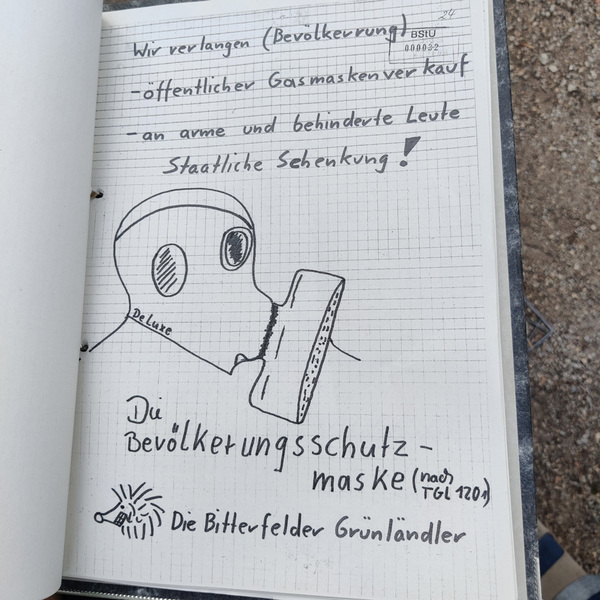 24
Wir verlangen (Bevölkerrung)
BStU
000032
-öffentlicher Gasmaskenverkauf
-an arme und behinderte Leute
Staatliche Schenkung!
DeLuxe
Die
Bevölkerungsschutz-
maske (nach
TGL 1201)
Die Bitterfelder Grünländler